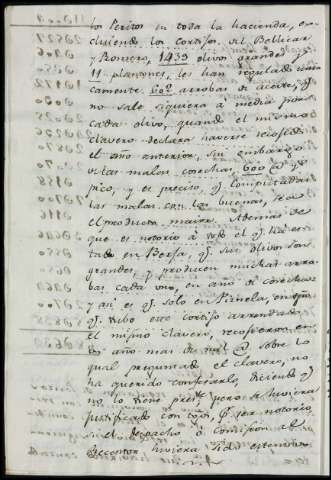 los Peritos en toda la hacienda, ex
cluiendo los cortijos, del Bellicar
y Romero, 1439 olivos grandes y
11 plantones, les han regulado unica
camente 602 arrobas de aceite, y
no sale siquiera a media por
cada olivo, quando el mismo
clavero declara haverse recojido
el año anterior, sin embargo
de las malas cosechas, 600 @ y
pico, y es preciso, q compitadas
las malas con las buenas, sea
el producto maior. Ademas de
que es notorio a todo el q ha es
tado en Berja, q sus olivos son
grandes, y producen muchas arro
bas cada uno, en año de cosecha
y asi es q solo en Pirnela, en
q hubo este cortijo arrendado
el mismo clavero, recojieron en
un año mas de mil @ sobre lo
qual preguntado el clavero, no
ha querido confesarlo, diciendo q
no lo tiene pres.te pero se huviera
justificado con todos, p.r ser notorio
si el despacho o comision al
Receptor huviera sido extensiva